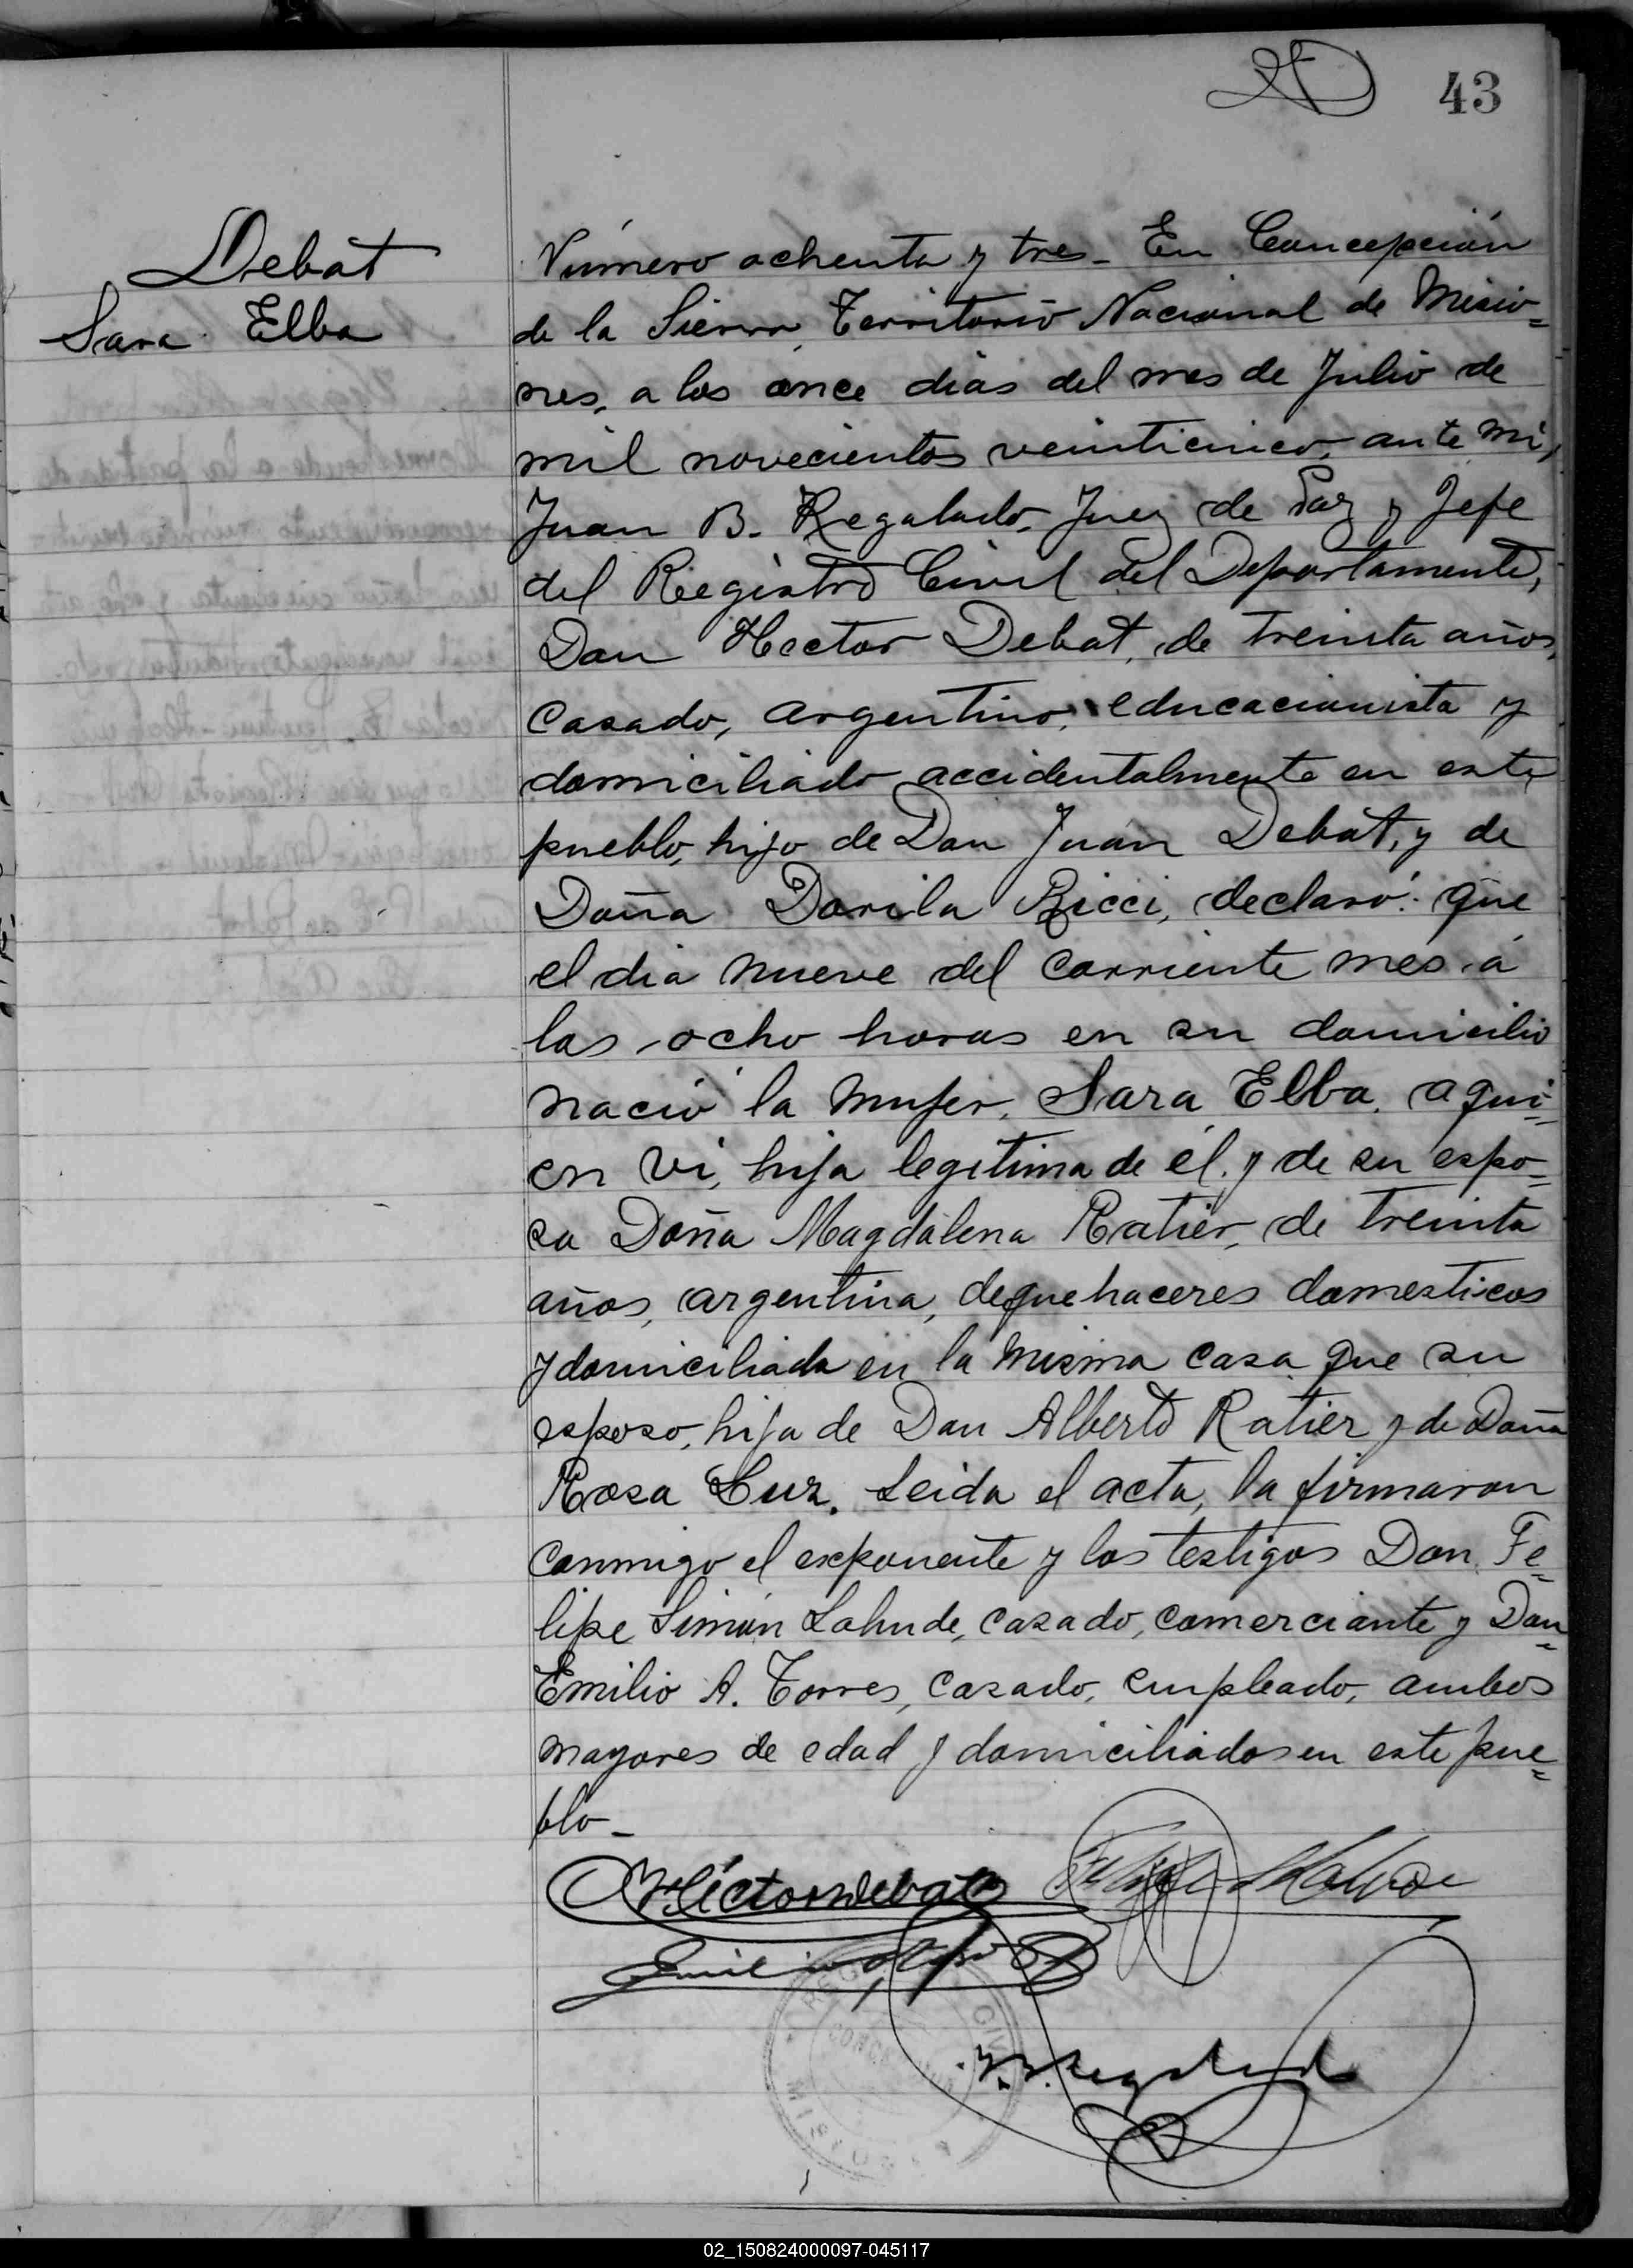 43
Debat
Sara Elba
Número ochenta y tres_ En Concepción
de la Sierra, Territorio Nacional de Misio=
nes, a los once dias del mes de Julio de
mil novecientos veinticinco, ante mi,
Juan B. Regalado, Juez de Paz y Jefe
del Registro Civil del Departamento,
Don Hector Debat, de treinta años,
casado, argentino, educacionista y
domiciliado accidentalmente en este
pueblo, hijo de Don Juan Debat, y de
Doña Dorila Ricci, declaró: que
el dia nueve del corriente mes á
las ocho horas en su domicilio
nació la mujer, Sara Elba, a qui=
en vi, hija legitima de él y de su espo=
sa Doña Magdalena Ratier, de treinta
años, argentina, de quehaceres domesticos
y domiciliada en la misma casa que su
esposo, hija de Don Alberto Ratier y de Doña
Rosa Luz. Leida el acta, la firmaron
conmigo el exponente y los testigos Don Fe=
lipe Simón Lahude, casado, comerciante y Don
Emilio A. Torres, casado, empleado, ambos
mayores de edad y domiciliados en este pue=
blo_
Héctor Debat
MISIONES
02_150824000097-045117